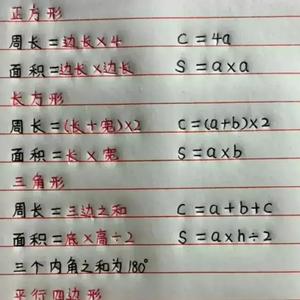 正方形
周长=边长×4 C=4a
面积=边长×边长 S=a×a
长方形
周长=(长+宽)×2 C=(a+b)×2
面积=长×宽 S=a×b
三角形
周长=三边之和 C=a+b+c
面积=底×高÷2 S=a×h÷2
三个内角之和为180°
平行四边形